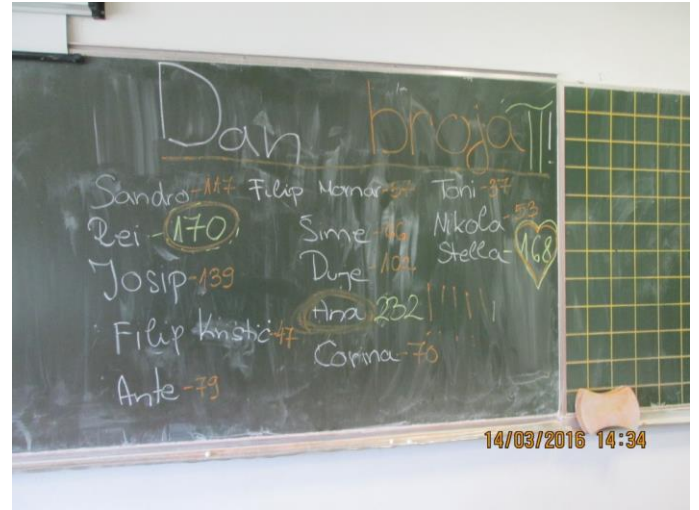 Dan broja π!
Sandro-117
Rei-170
Josip-139
Filip Krstić-47
Ante-79
Filip Mornar-57
Šime-46
Duje-102
Ana 232 !!!!!!
Corina-70
Toni-37
Nikola-53
Stella-168
14/03/2016 14:34